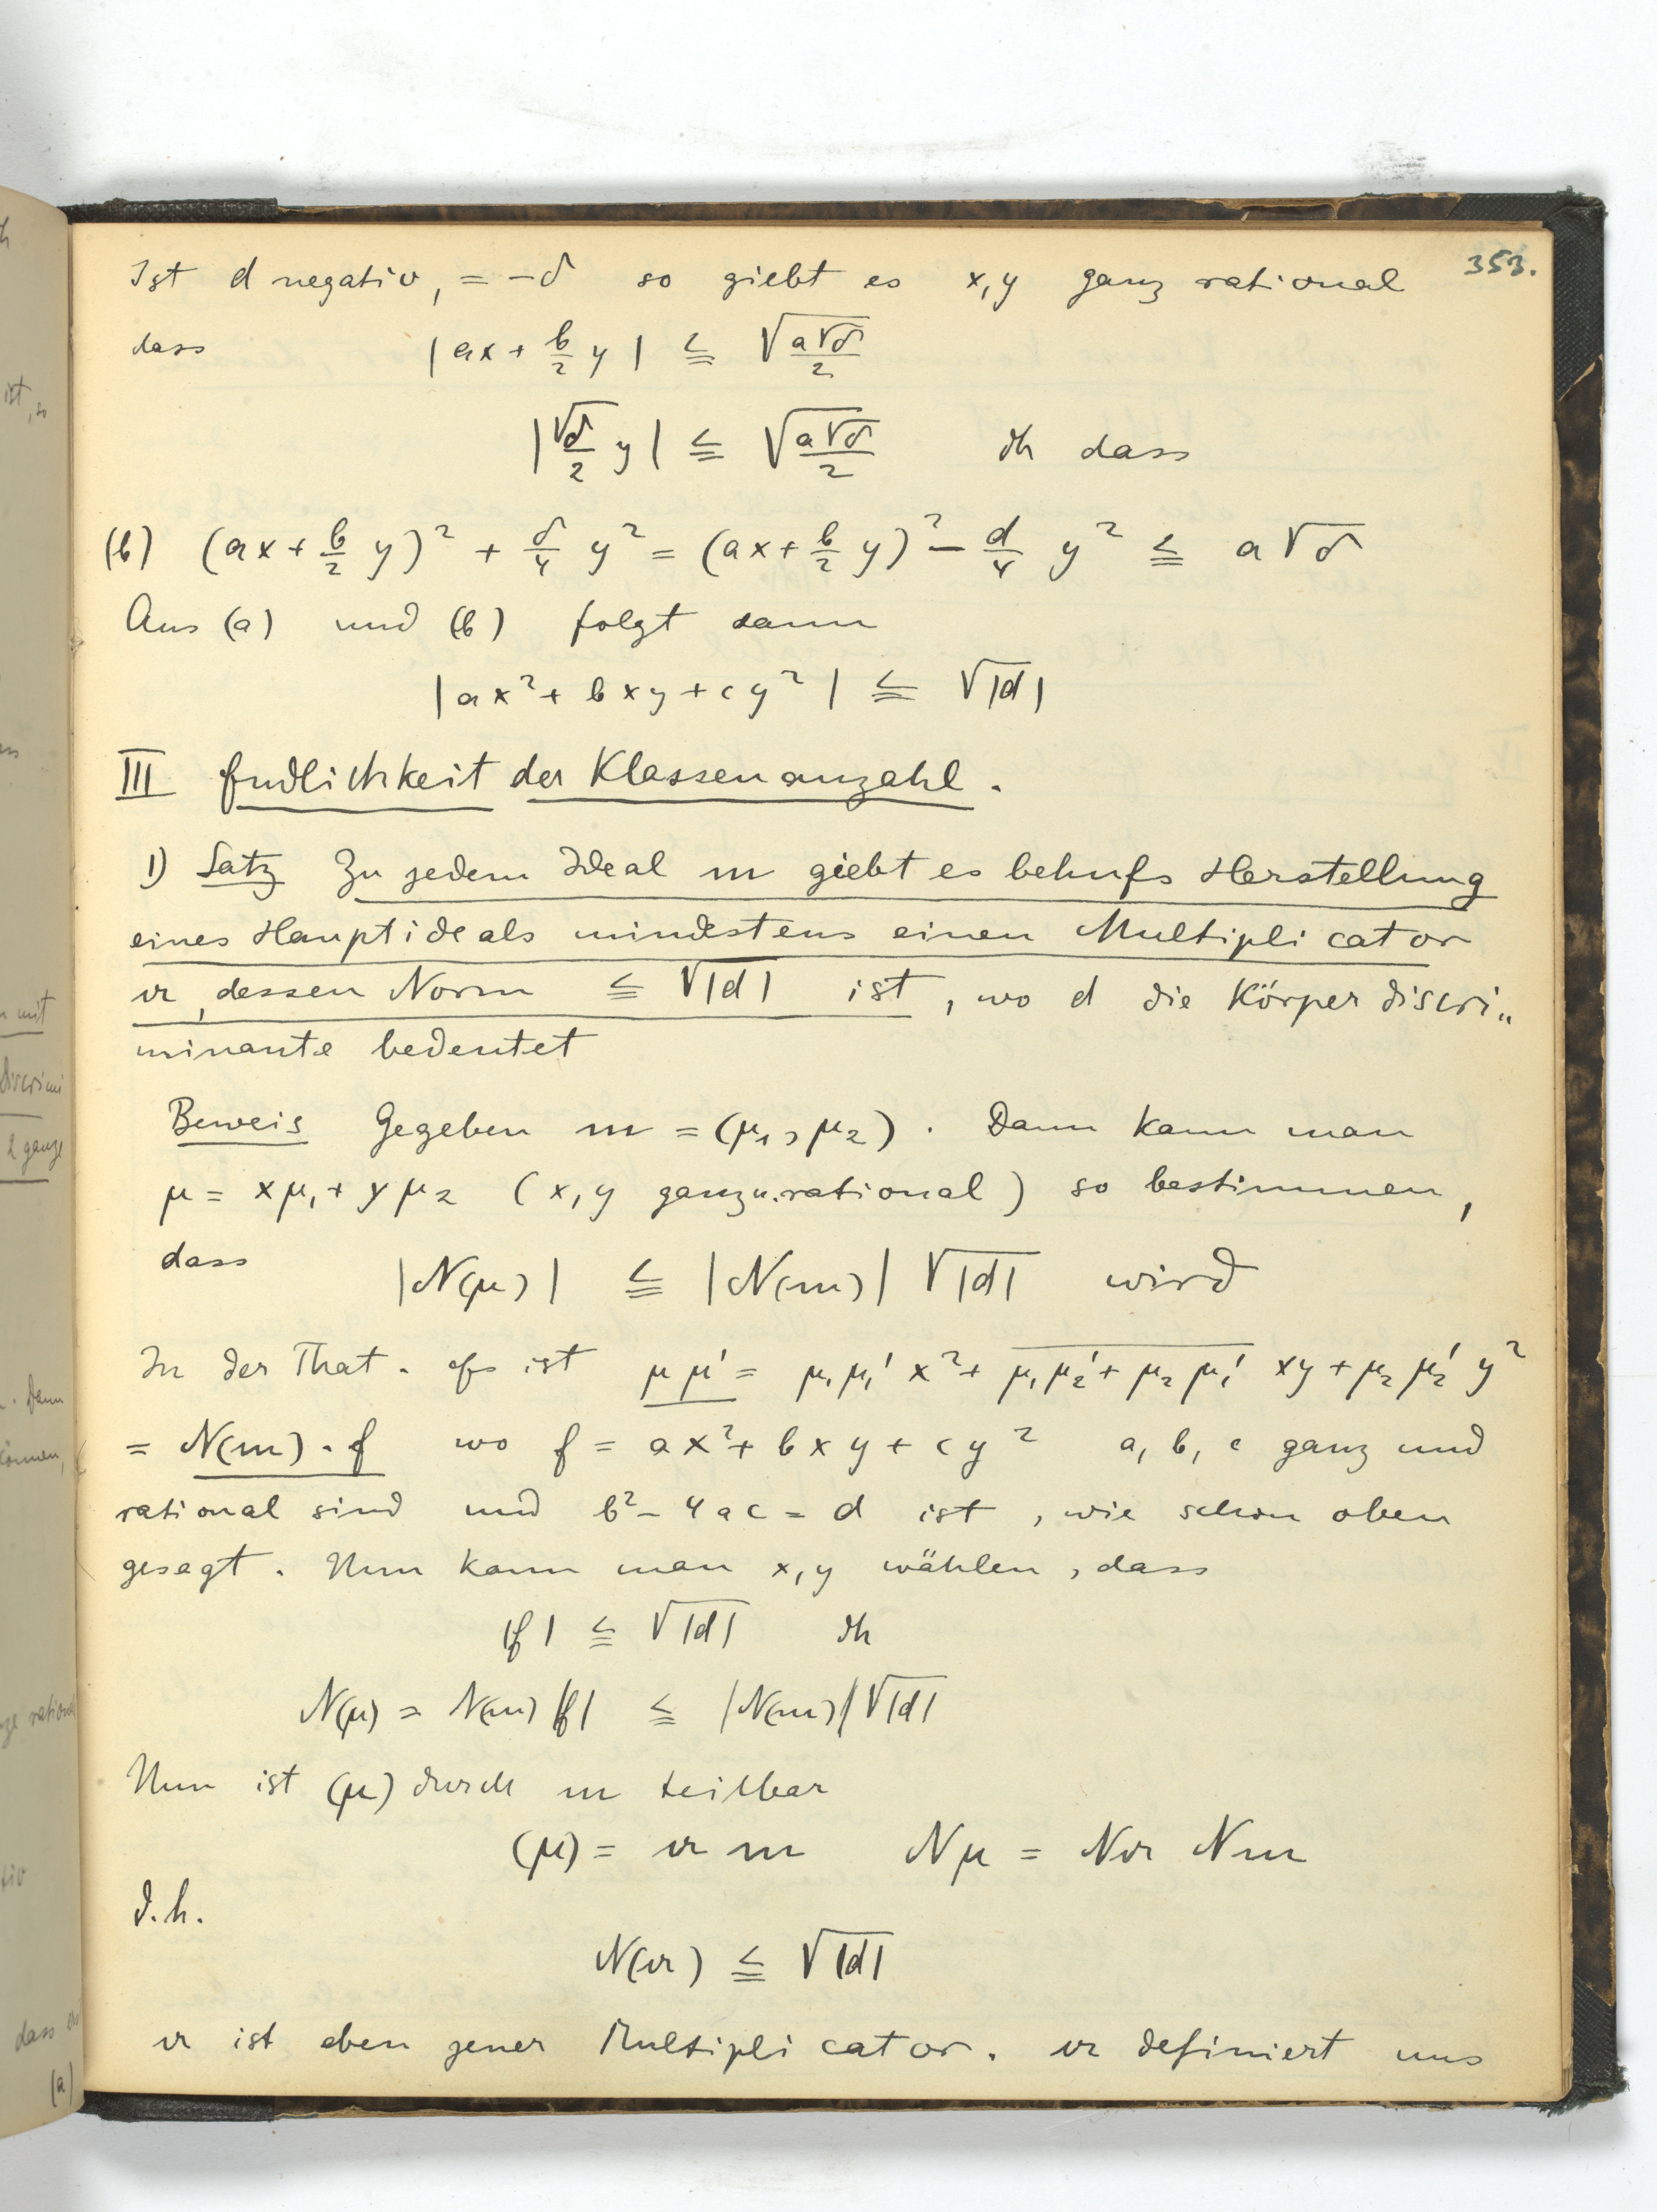 353.
Ist d negativ, = −δ so giebt es x, y ganz rational
dass |ax + b/2 y| ≦ √(a√δ/2)
|√δ/2 y| ≦ √(a√δ/2) dh dass
(b) (ax + b/2 y)² + δ/4 y² = (ax + b/2 y)² − d/4 y² ≦ a√δ
Aus (a) und (b) folgt dann
|ax² + bxy + cy²| ≦ √|d|
III Endlichkeit der Klassenanzahl.
1) Satz Zu jedem Ideal m giebt es behufs Herstellung
eines Hauptideals mindestens einen Multiplicator
n, dessen Norm ≦ √|d| ist, wo d die Körperdiscri„
minante bedeutet
Beweis Gegeben m = (μ₁, μ₂). Dann kann man
μ = xμ₁ + yμ₂ (x, y ganz u. rational) so bestimmen,
dass |N(μ)| ≦ |N(m)| √|d| wird
In der That. Es ist μμ' = μ₁μ₁' x² + μ₁μ₂' + μ₂μ₁' xy + μ₂μ₂' y²
= N(m) . f wo f = ax² + bxy + cy² a, b, c ganz und
rational sind und b² − 4ac = d ist, wie schon oben
gesagt. Nun kann man x, y wählen, dass
|f| ≦ √|d| dh
N(μ) = N(m) |f| ≦ |N(m)| √|d|
Nun ist (μ) durch m teilbar
(μ) = n m Nμ = Nn Nm
d.h.
N(n) ≦ √|d|
n ist eben jener Multiplicator. n definiert uns
ist, so
mit
Discrimi
2 ganze
. Denn
können,
dass
(a)